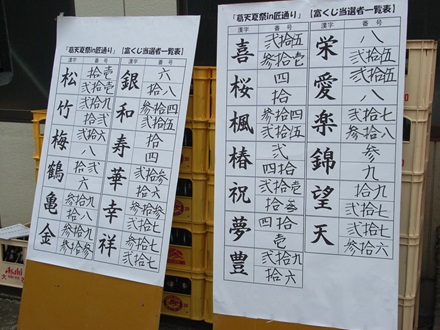 「葛天夏祭in匠通り」【富くじ当選者一覧表】
漢字 番号 漢字 番号
松 拾壱 弐拾壱 銀 六 拾八
竹 弐拾九 弐拾 和 参拾四 弐拾五
梅 弐拾六 八 寿 拾 四
鶴 拾弐 六 華 弐拾参 参拾六
亀 参拾九 拾八 幸 参拾参 弐拾七
金 弐拾九 参拾参 祥 弐拾七 拾七
「葛天夏祭in匠通り」【富くじ当選者一覧表】
漢字 番号 漢字 番号
喜 弐拾五 参拾壱 栄 八 弐拾五
桜 四 拾 愛 拾八
楓 参拾四 弐拾五 楽 弐拾七 参拾八
椿 弐 四拾 錦 参 九
祝 弐拾壱 拾壱 望 拾九 弐拾七
夢 四拾 壱 天 弐拾七 参拾六
豊 弐拾九 拾六
Asahi